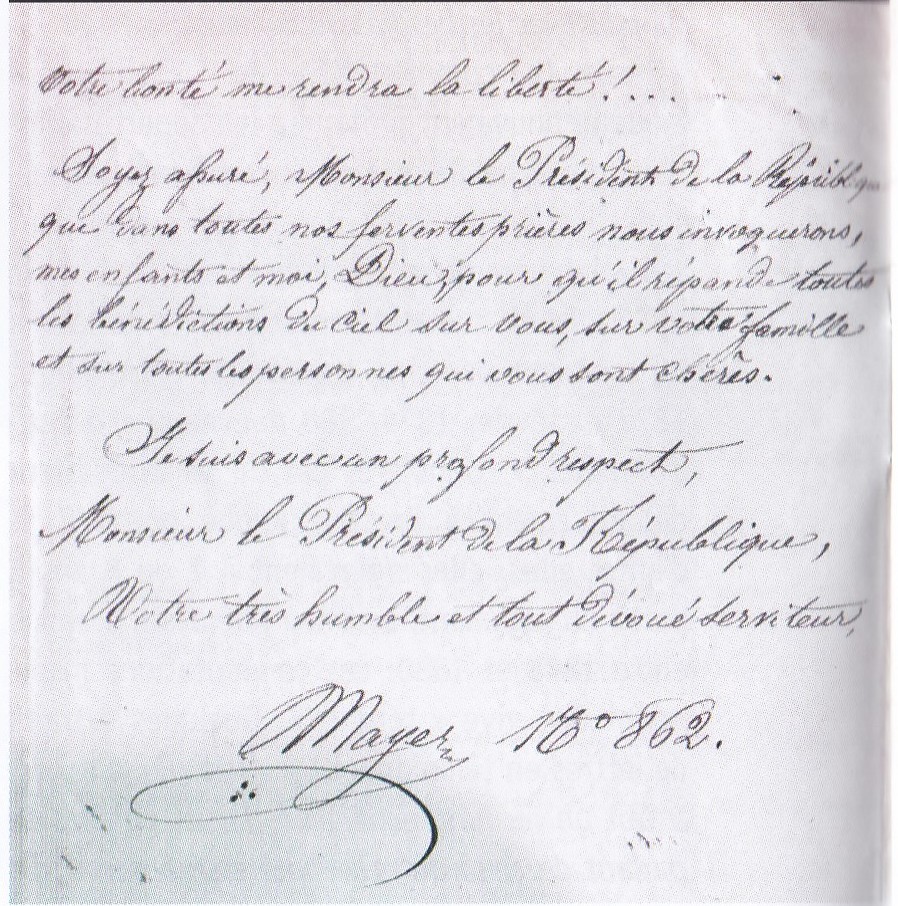 Votre bonté me rendra la liberté!...
Soyez assuré, Monsieur le Président de la République
que dans toutes nos ferventes prières nous invoquerons,
mes enfants et moi, Dieu, pour qu'il répande toutes
les bénédictions du Ciel sur vous, sur votre famille
et sur toutes les personnes qui vous sont chères.
Je suis avec un profond respect,
Monsieur le Président de la République,
Votre très humble et tout dévoué serviteur,
Mayer No 862.